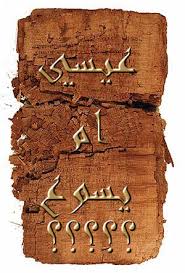 عيسى
ام
يسوع
؟؟؟؟؟